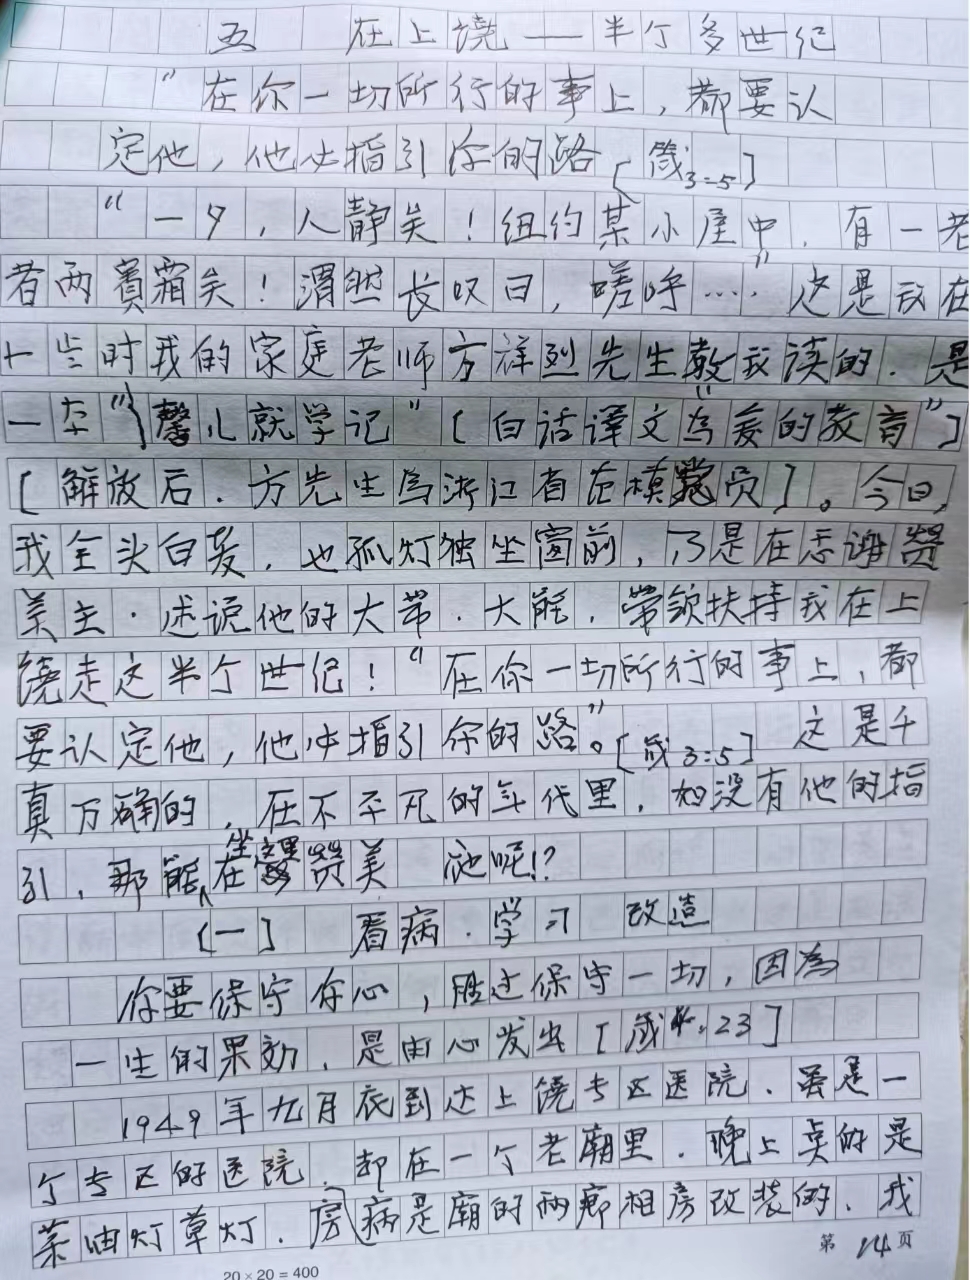 五 在上饶——半个多世纪
“在你一切所行的事上，都要认
定他，他必指引你的路［箴3:5］
“一夕，人静矣！纽约某小屋中，有一老
者两鬓霜矣！渭然长叹曰，嗟呼……”这是我在
十岁时我的家庭老师方祥烈先生教我读的．是
一本“馨儿就学记”［白话译文为“爱的教育”］
［解放后．方先生为浙江省在模党员］。今日，
我全头白发，也孤灯独坐窗前，乃是在感谢赞
美主．述说他的大带．大能．带领扶持我在上
饶走这半个世纪！“在你一切所行的事上，都
要认定他，他必指引你的路。”［箴3:5］ 这是千
真万确的，在不平凡的年代里，如没有他的指
引，那能坐在这里赞美 他呢!?
［一］ 看病．学习 改造
你要保守你心，胜过保守一切，因为
一生的果效，是由心发出［箴4:23］
1949年九月底到达上饶专区医院．虽是一
个专区的医院，却在一个老庙里．晚上点的是
菜油灯草灯．病房是庙的两廊相房改装的、我
第 14 页
20×20=400